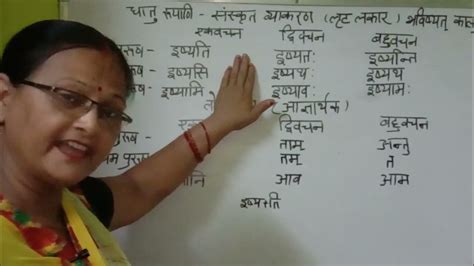 धातु रूपाणि - संस्कृत व्याकरण (लृट लकार) भविष्यत् काल
एकवचन द्विवचन बहुवचन
पुरुष - इष्यति इष्यतः इष्यन्ति
पुरुष - इष्यसि इष्यथः इष्यथ
पुरुष - इष्यामि इष्यावः इष्यामः
(आज्ञार्थक)
द्विवचन बहुवचन
पुरुष - ताम् अन्तु
तम् त
आनि आव आम
इष्य+ति